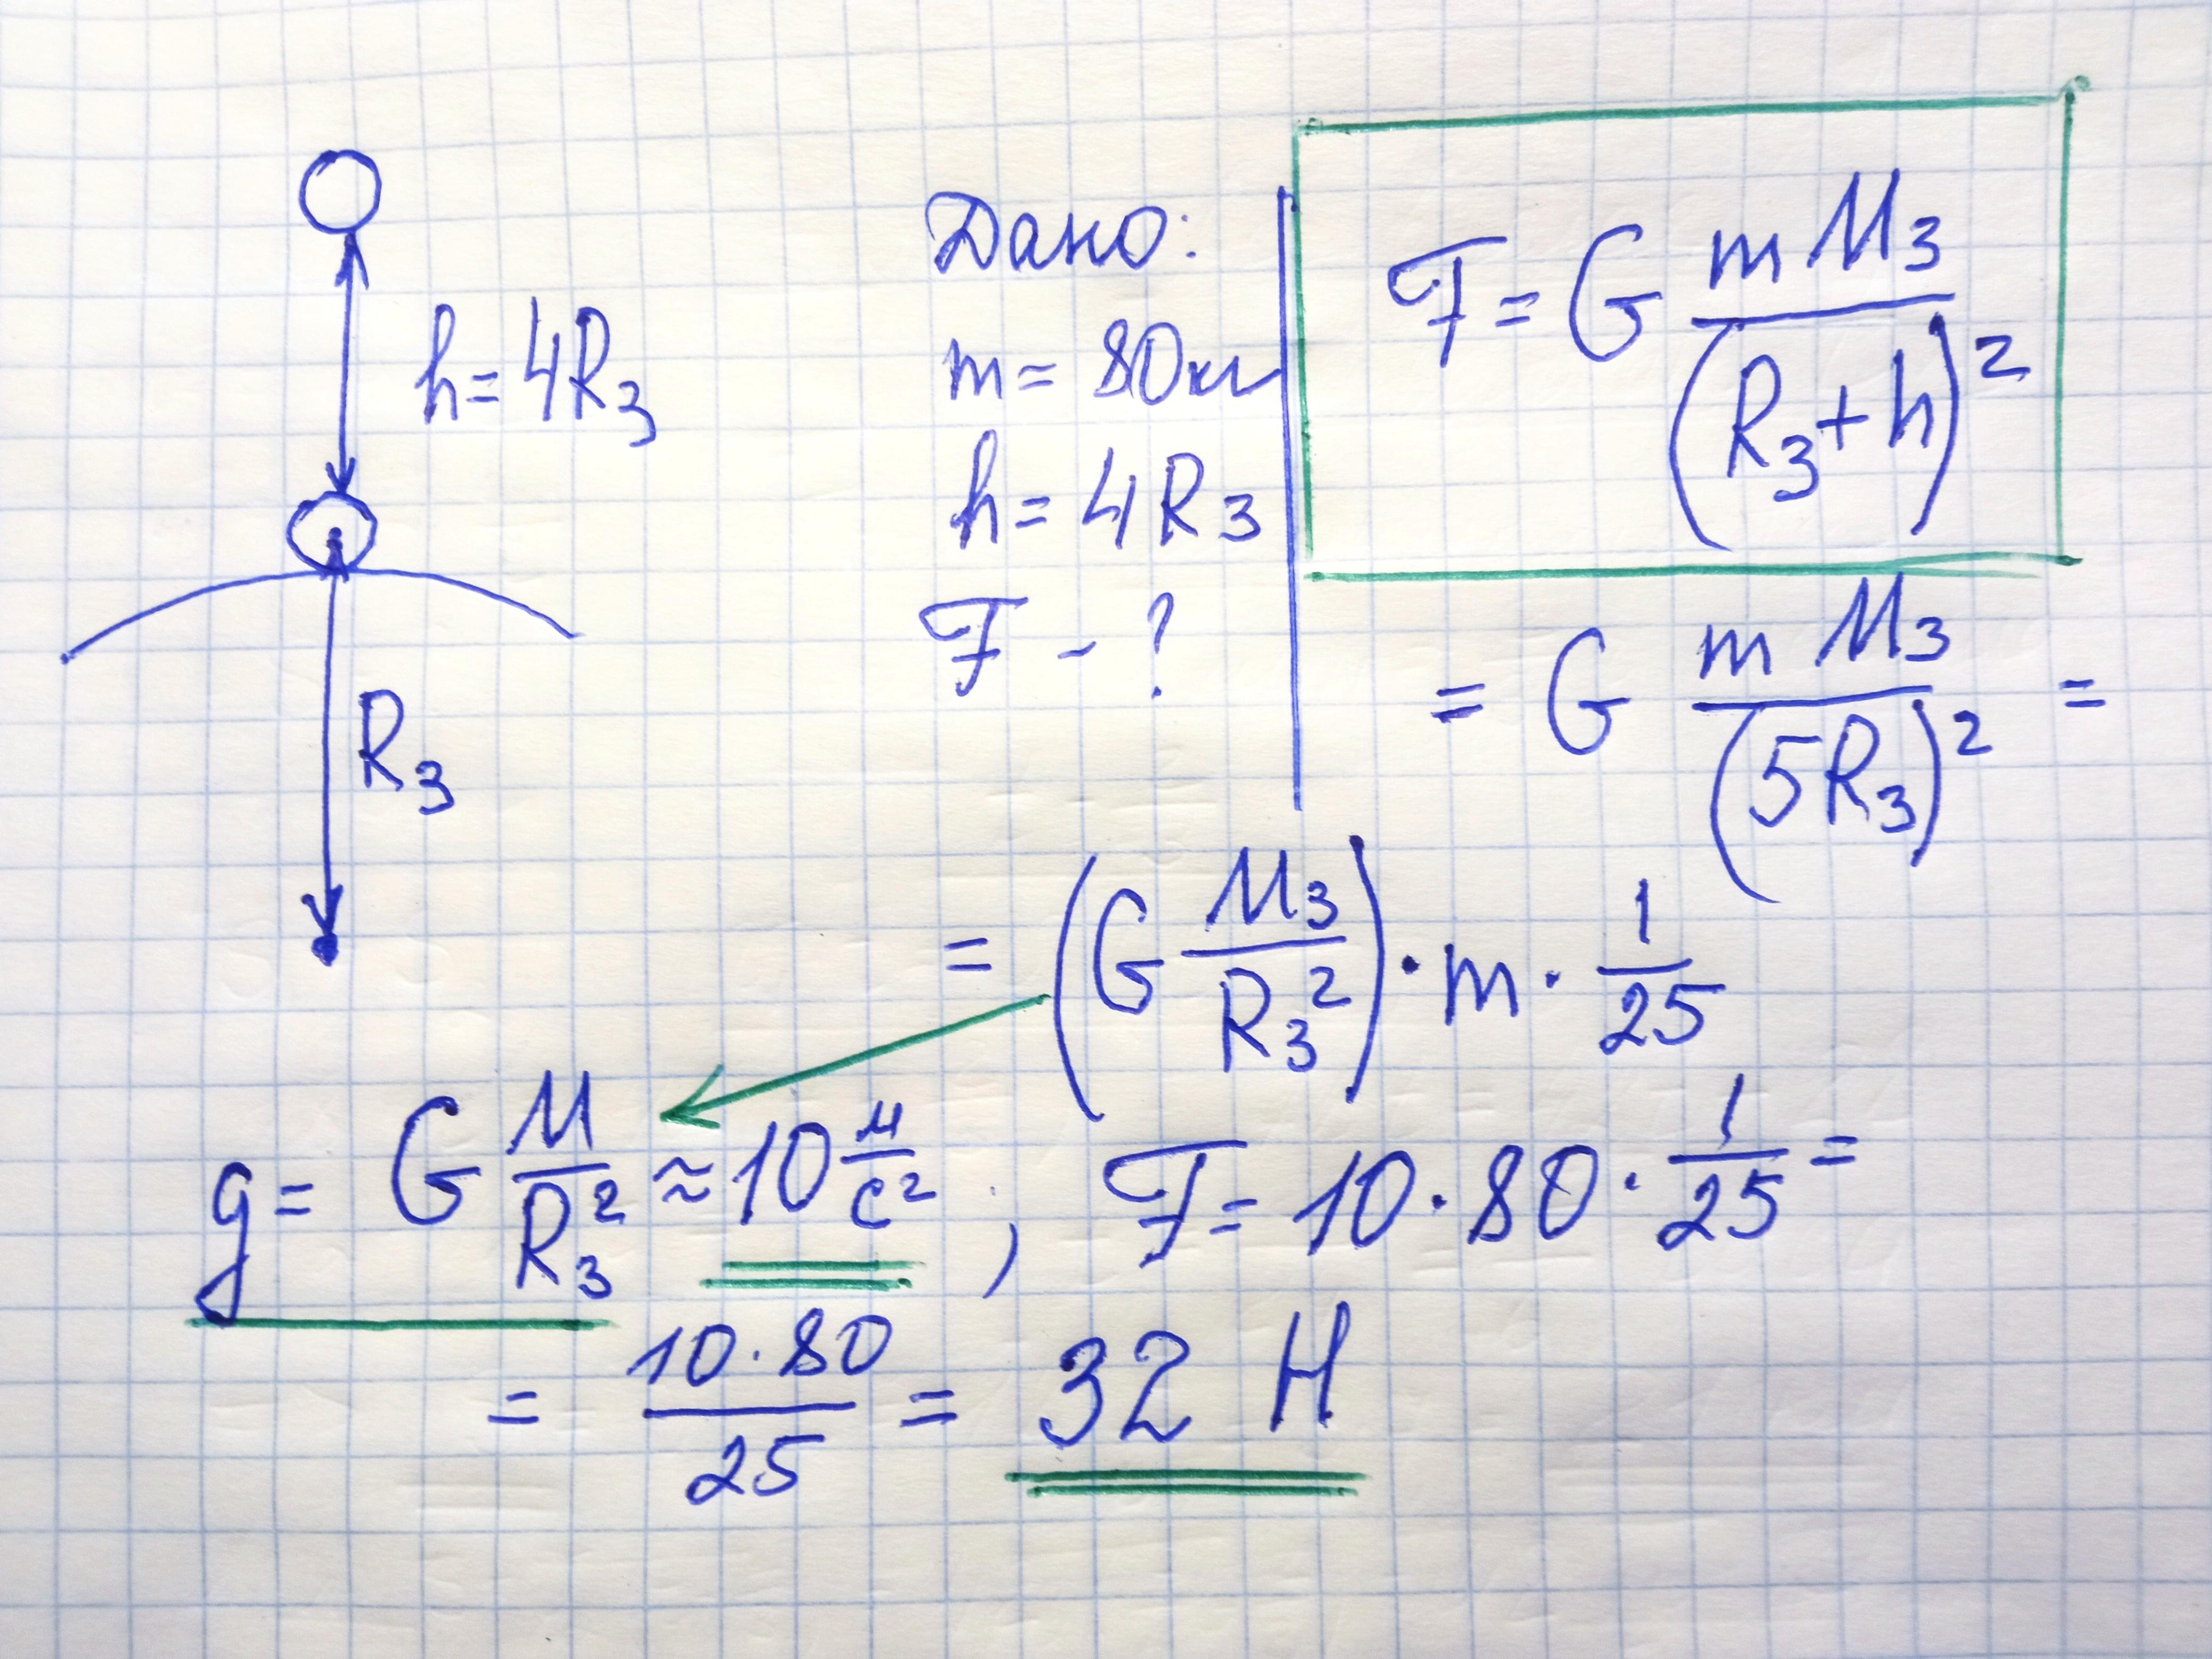 h = 4R₃
R₃
Дано:
m = 80кг
h = 4R₃
F - ?
F = G mM₃/(R₃+h)²
= G mM₃/(5R₃)² =
= (G M₃/R₃²) · m · 1/25
g = G M/R₃² ≈ 10 м/с² ; F = 10 · 80 · 1/25 =
= 10 · 80/25 = 32 Н